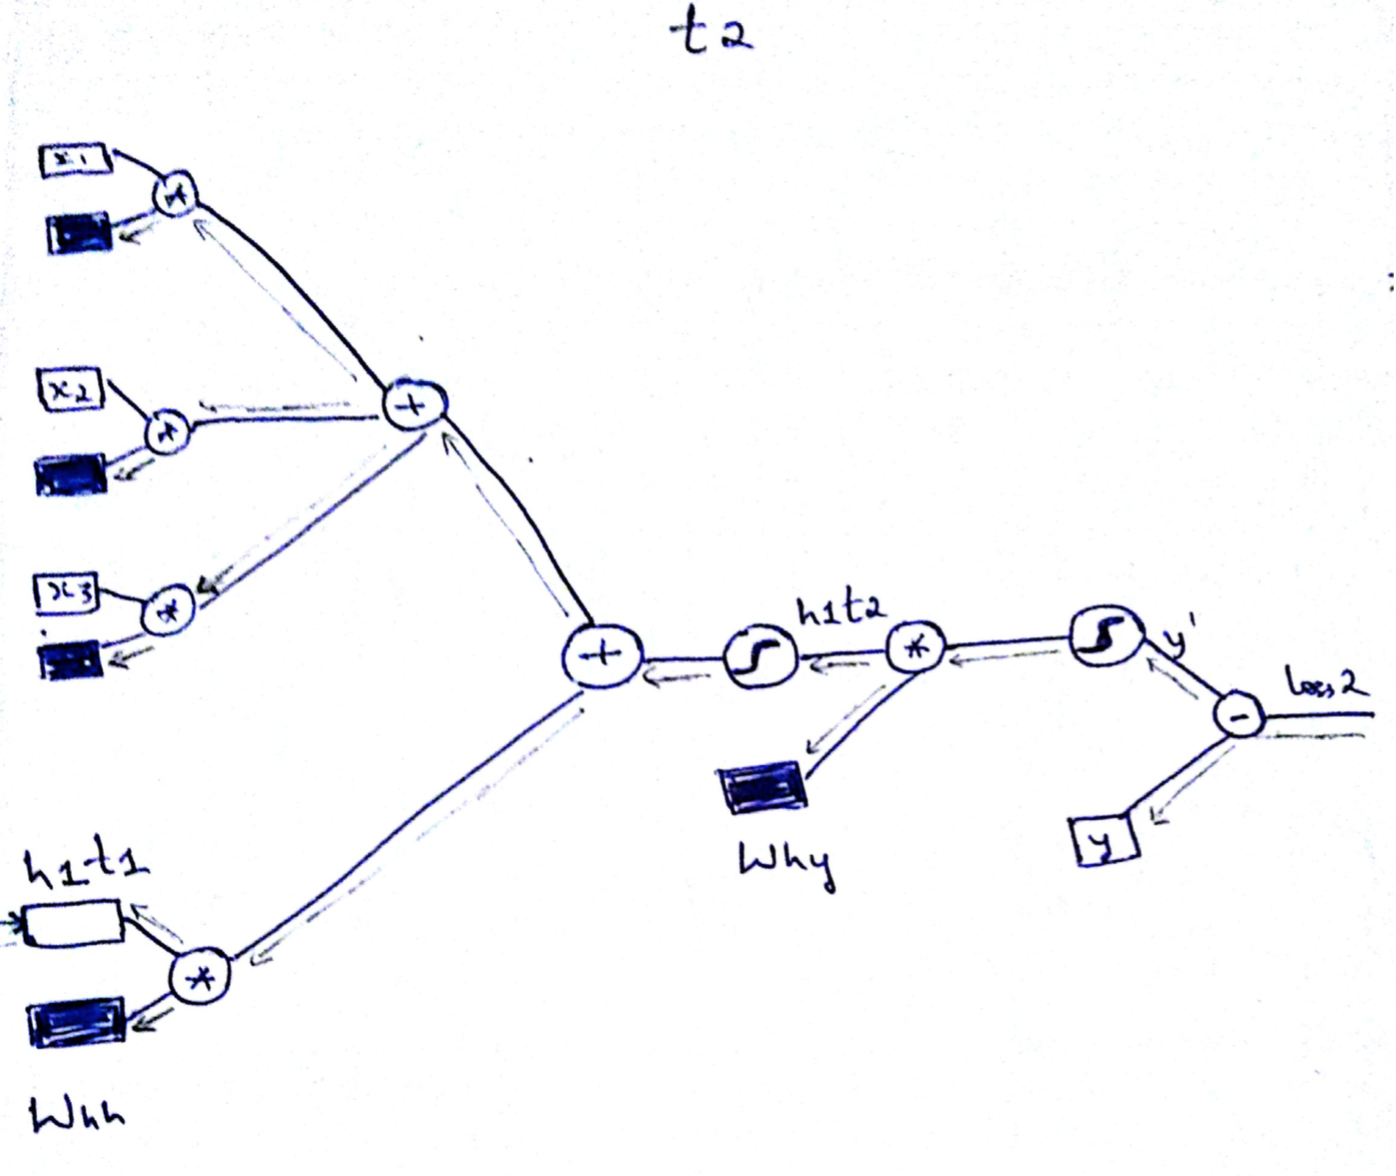 t2
x1
*
x2
*
+
x3
*
+
h1t2
*
y'
-
loss2
Why
y
h1t1
*
Whh